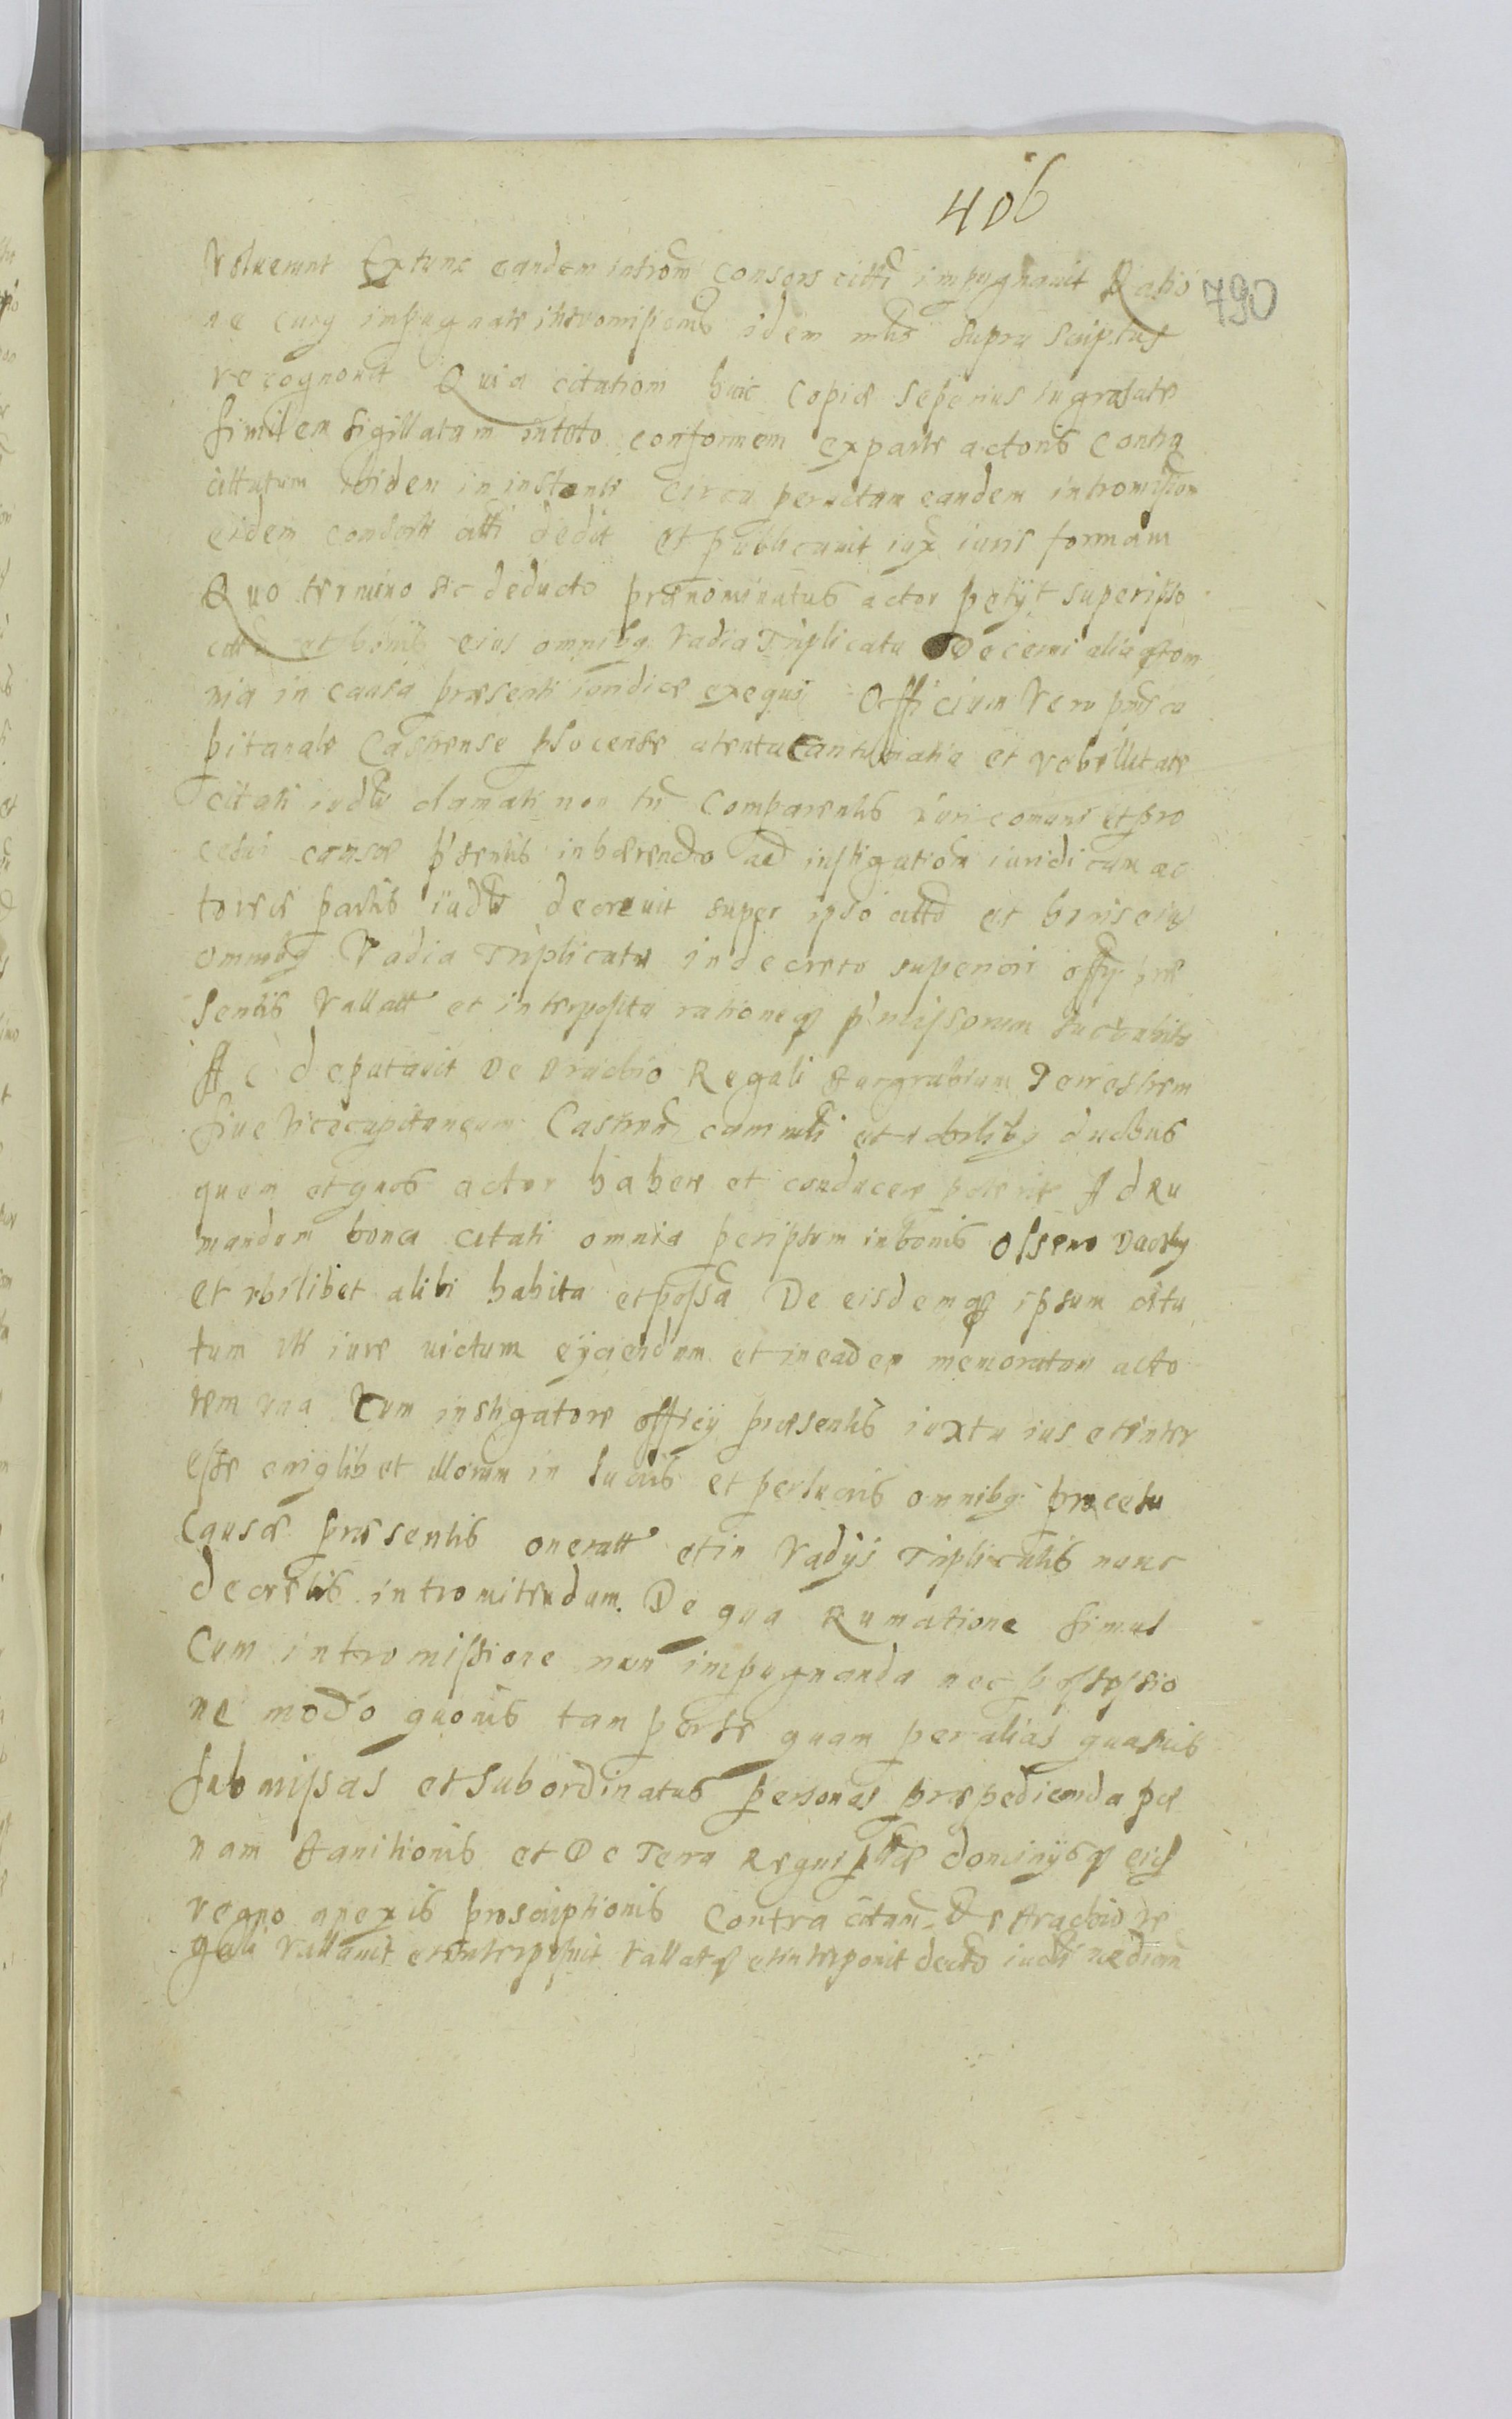 406
790
Voluerunt Extunc eandem introm consors citti impugnauit Ratio
ne cuiq impugnate intromissionis idem mlis supra Scriptus
recognouit Quia citationi huic copiæ superius ingrosate
similem sigillatam intoto conformem exparte actoris contra
cittatum ibidem in instanti circa peractam eandem intromission
eidem consorti citti dedit et publicauit iux iuris formam
Quo termino sic deducto prænominatus actor petÿt superipso
citto et bonis eius omnibq Vadia Triplicata Decerni aliaqtom
nia in causa præsenti iuridice exequi Officium Vero pñs ca
pitanale Castrense plocense atenta contumatia et rebellitate
citati iudtr clamati non tñ comparentis iuri comuni etpro
cesui causæ pˀsentis inhærendo ad instigationem iuridicam ac
toreæ partis iudtr decreuit super ipso citto et bonis eius
omnibq Vadia Triplicata indecreto superiori offÿ præ
sentis Vallatt et interposita rationeq pˀmissorum
Ac deputauit De Brachio Regali Burgrabium Terestrem
siue Vicecapitaneum Castren cum mlti et nobilibq duobus
quem etquos actor habere et conducere poterit Ad Ru
mandam bona citati omnia peripsum inbonis Osseno
et vbilibet alibi habita etpossa De eisdemq ipsum cita
tum vti iure uictum eÿciendum et ineadem memoratum acto
rem vna Cum instigatore officÿ præsentis iuxta ius etinter
esse cuiqlibet illorum in lucris et perlucris omnibq procesu
causæ præsentis oneratt etin Vadÿs Triplicatis nunc
decretis intromitendum. De qua Rumatione simul
Cum intromissione non impugnanda nec possessio
ne modo quouis tam perse quam peralias quasuis
submissas etsubordinatas personas præpedienda pœ
nam Banitionis et De Terra Regni plæ dominÿsq eius
regno anexis proscriptionis contra citatum De Brachio re
gali Vallauit etinterposuit Vallatq etinterponit decto iudti median